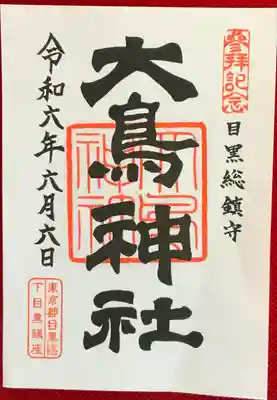 参拝記念
目黒総鎮守
大鳥神社
令和六年六月六日
東京都目黒區
下目黒鎮座